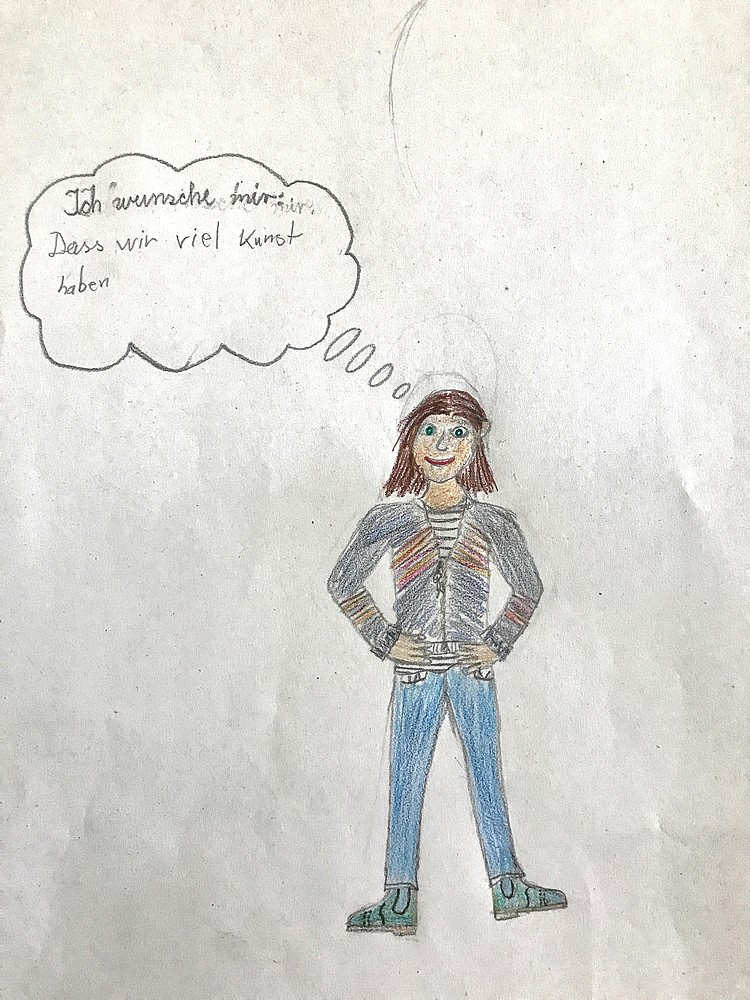 Ich wünsche mir:
Dass wir viel Kunst
haben